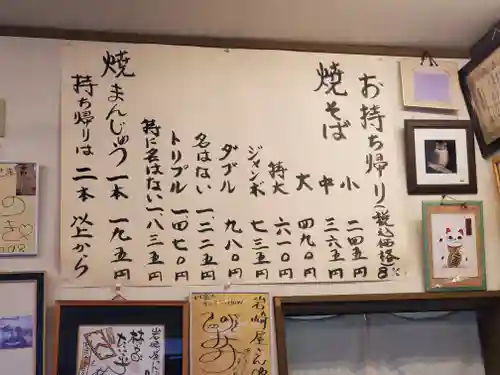 お持ち帰り(税込価格8%)
焼そば
小 二四五円
中 三六五円
大 四九〇円
特大 六一〇円
ジャンボ 七三五円
ダブル 九八〇円
名はない 一、二二五円
トリプル 一、四七〇円
特に名はない 一、八三五円
焼まんじゅう 一本 一九五円
持ち帰りは 二本 以上から
岩崎屋さん